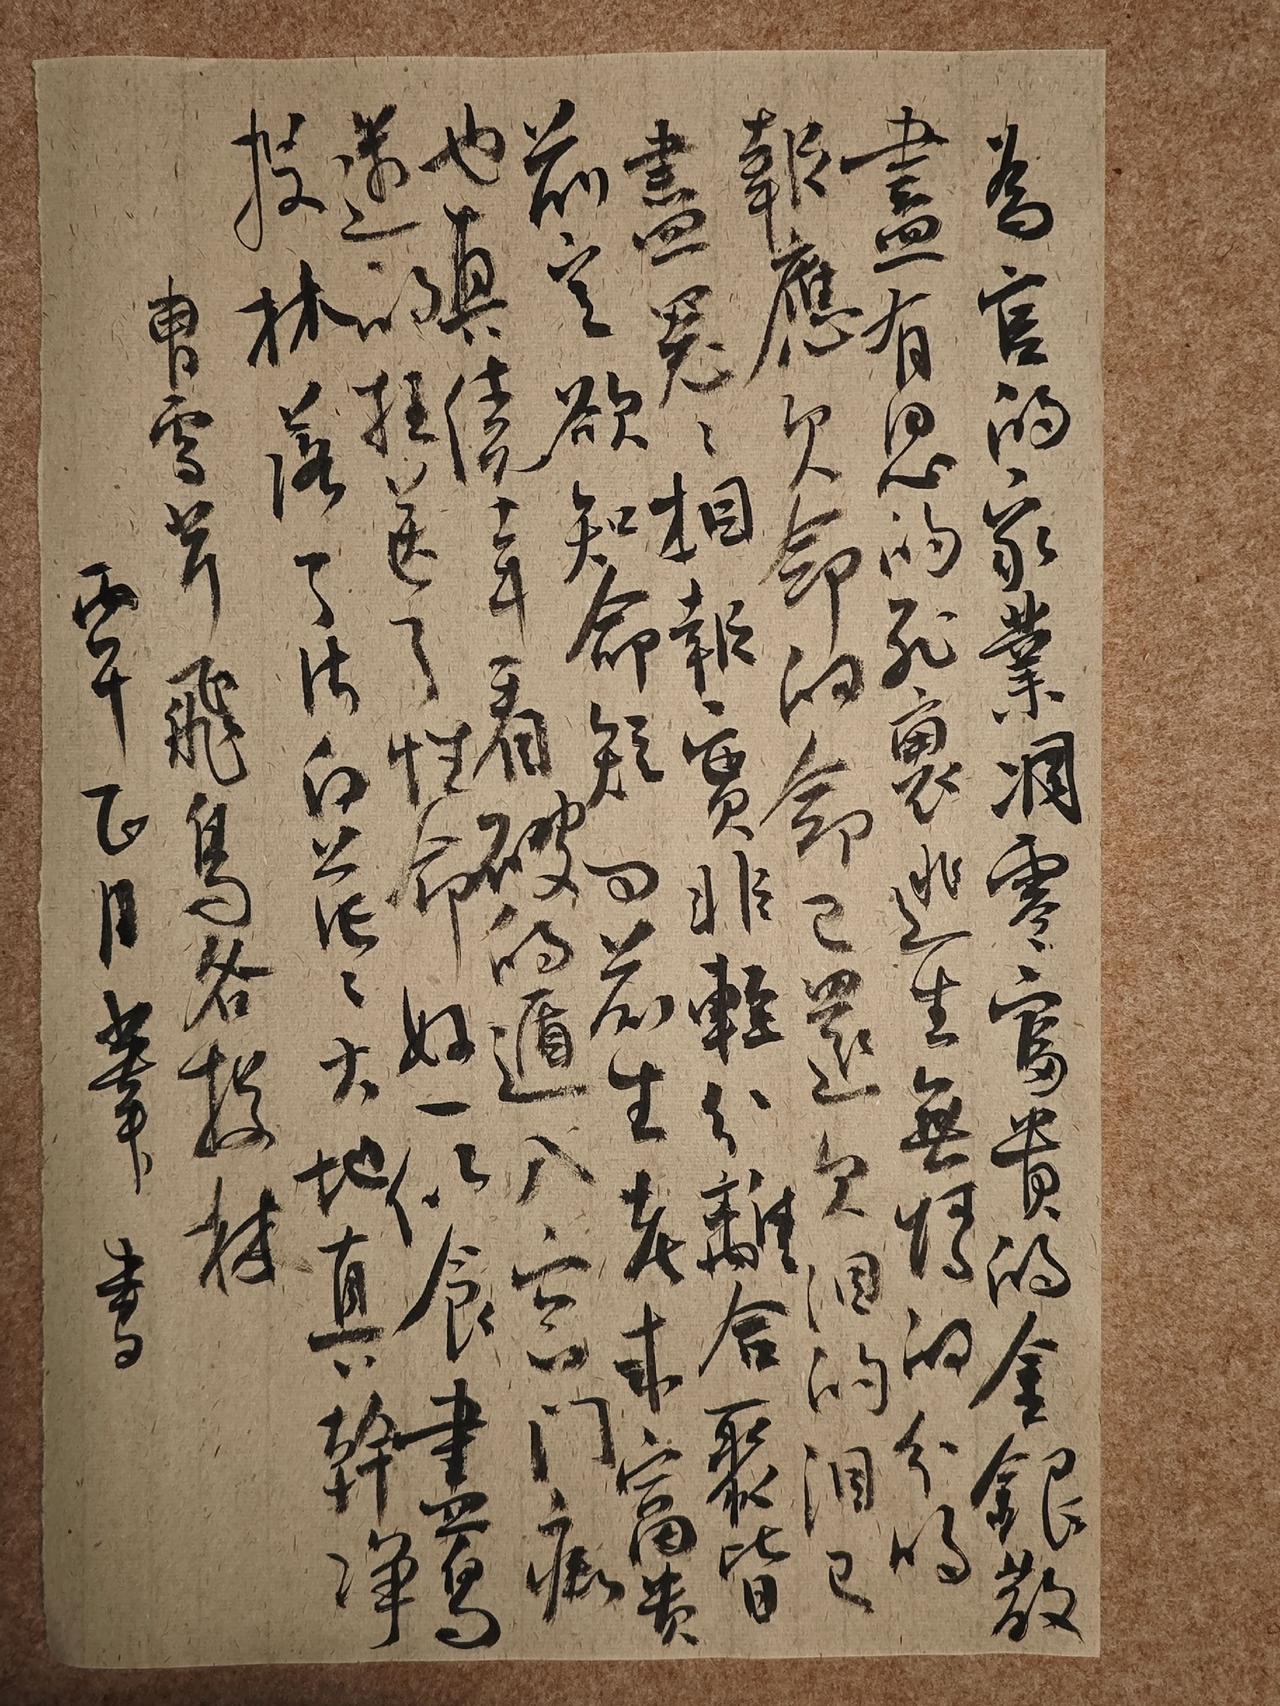 為官的家業凋零富貴的金銀散
盡有恩的死裏逃生無情的分明
報應欠命的命已還欠泪的泪已
盡冤〻相報實非輕分離合聚皆
前定欲知命短问前生老來富贵
也真僥幸看破的遁入空门痴
迷的枉送了性命好一似食盡鳥
投林落了片白茫〻大地真幹净
曹雪芹飛鳥各投林
丙午正月 書